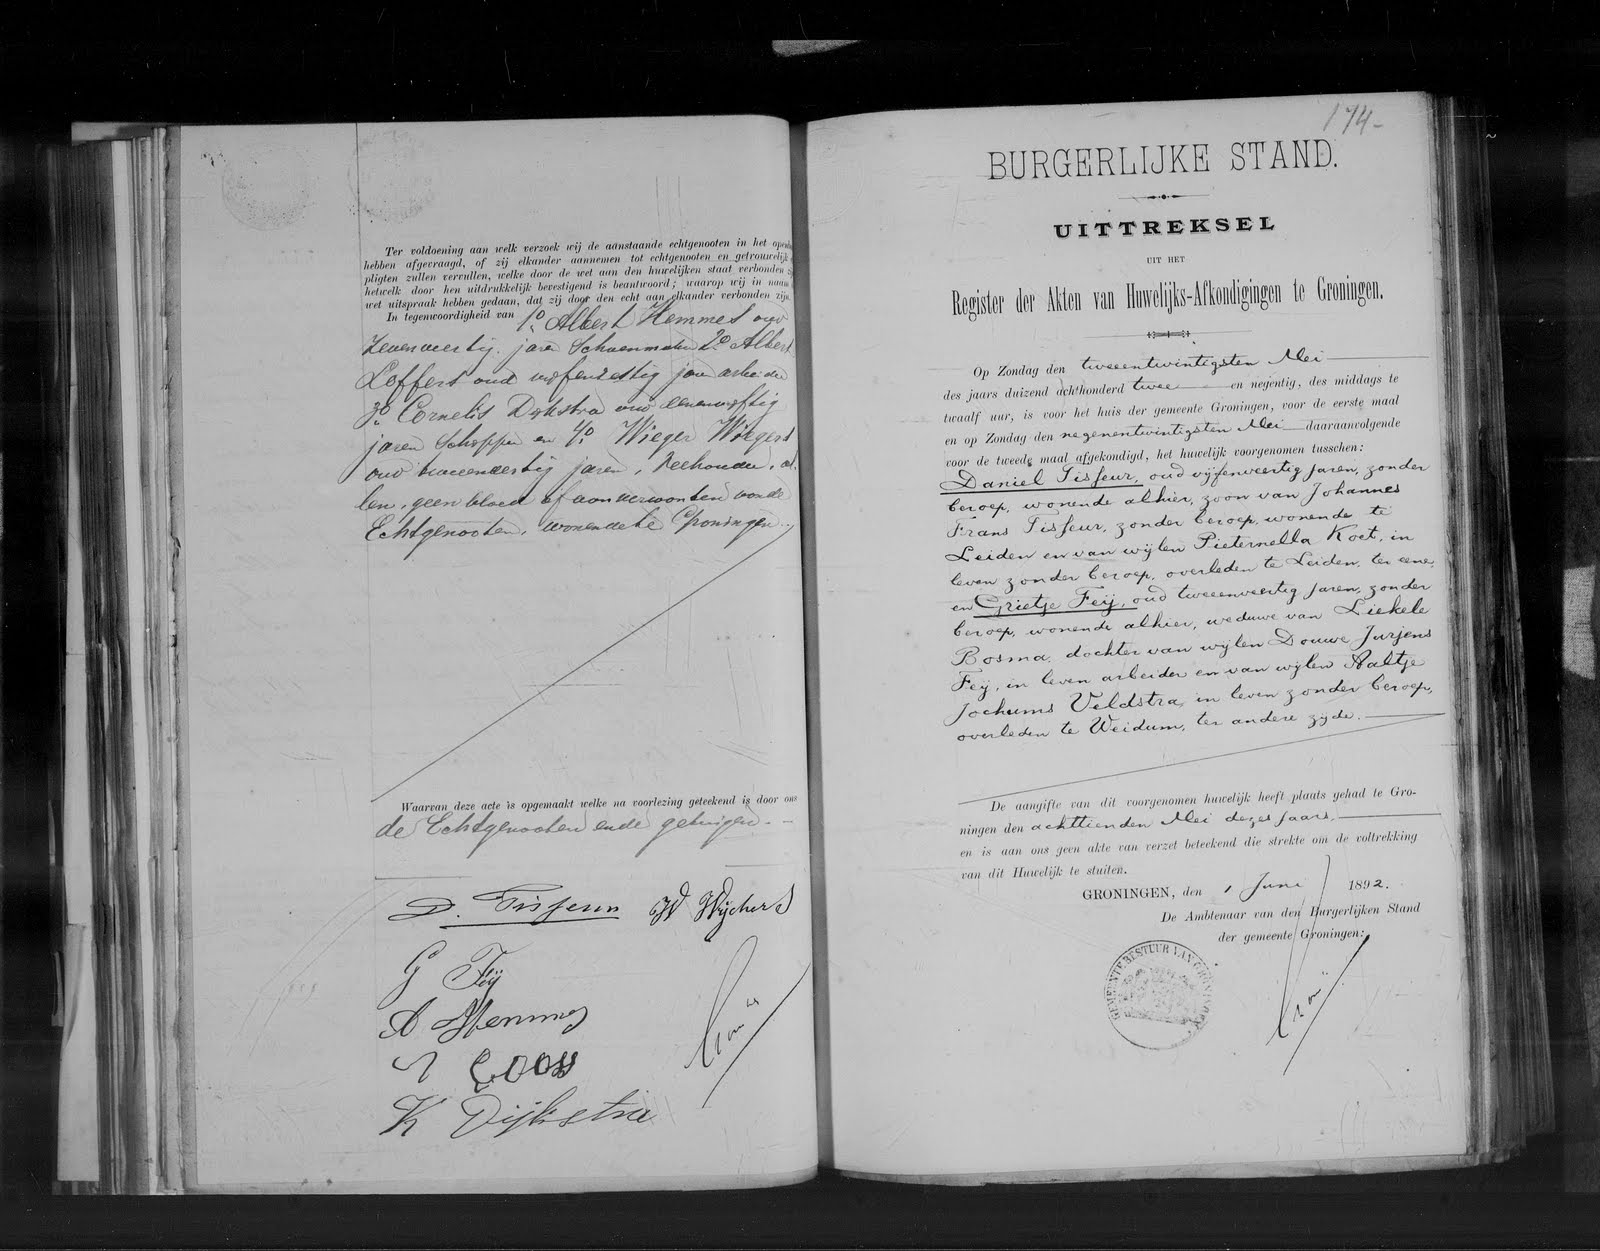 Ter voldoening aan welk verzoek wij de aanstaande echtgenooten in het
hebben afgevraagd, of zij elkander aannemen tot echtgenooten en getrouwelijk
pligten zullen vervullen, welke door de wet aan den huwelijken staat verbonden
hetwelk door hen uitdrukkelijk bevestigend is beantwoord; waarop wij in naam
wet uitspraak hebben gedaan, dat zij door den echt aan elkander verbonden zijn.
In tegenwoordigheid van 1o Albert Hemmes oud
zevenveertig jaren Schoenmaker 2o Albert
Loffers oud vijfenzestig jaar arbeider
3o Cornelis Dijkstra oud eenenvijftig
jaren Schipper en 4o Wieger Wiegers
oud tweeendertig jaren, veehouder, al
len, geen bloed of aanverwanten van de
Echtgenooten, wonende te Groningen.
Waarvan deze acte is opgemaakt welke na voorlezing geteekend is door ons
de Echtgenooten ende getuigen.
D. Tisseur W Wijchers
G Feij
A Hemmes
K Dijkstra
174-
BURGERLIJKE STAND.
UITTREKSEL
UIT HET
Register der Akten van Huwelijks-Afkondigingen te Groningen.
Op Zondag den tweeentwintigsten Mei
des jaars duizend achthonderd twee en negentig, des middags te
twaalf uur, is voor het huis der gemeente Groningen, voor de eerste maal
en op Zondag den negenentwintigsten Mei daaraanvolgende
voor de tweede maal afgekondigd, het huwelijk voorgenomen tusschen:
Daniel Tisseur, oud vijfenveertig jaren, zonder
beroep, wonende alhier, zoon van Johannes
Frans Tisseur, zonder beroep, wonende te
Leiden en van wijlen Pieternella Koet, in
leven zonder beroep, overleden te Leiden, ter eene,
en Grietje Feij, oud tweeenveertig jaren, zonder
beroep, wonende alhier, weduwe van Liekele
Bosma, dochter van wijlen Douwe Jurjens
Feij, in leven arbeider en van wijlen Aaltje
Jochums Veldstra, in leven zonder beroep,
overleden te Weidum, ter andere zijde.
De aangifte van dit voorgenomen huwelijk heeft plaats gehad te Gro-
ningen den achttienden Mei dezes jaars.
en is aan ons geen akte van verzet beteekend die strekte om de voltrekking
van dit Huwelijk te stuiten.
GRONINGEN, den 1 Juni 1892.
De Ambtenaar van den Burgerlijken Stand
der gemeente Groningen:
GEMEENTE BESTUUR VAN GRONINGEN